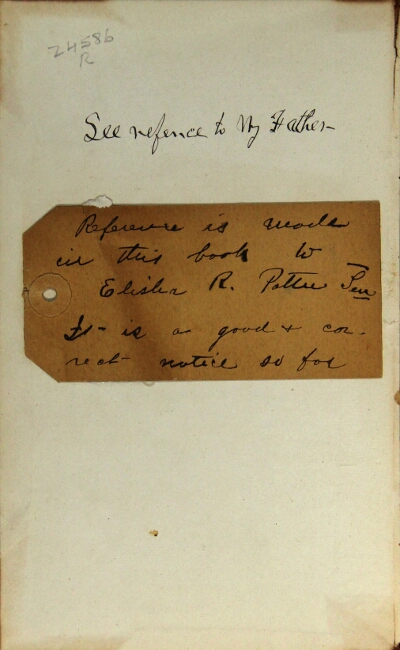 24586
R
See refence to My Father
Reference is made
in this book to
Elisha R. Potter Sen
It is a good & cor-
rect notice so far